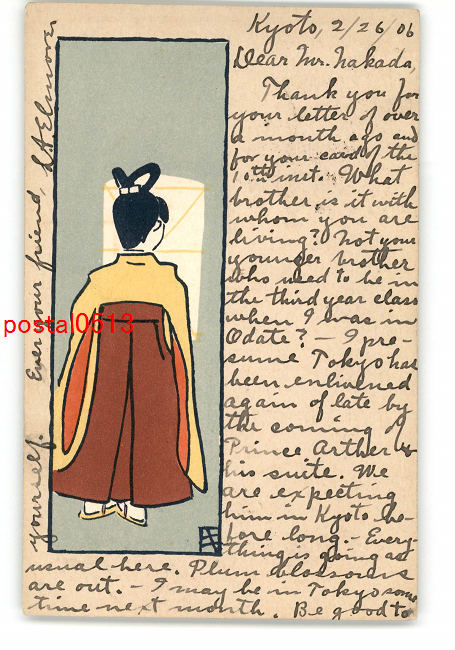 Kyoto, 2/26/06
Dear Mr. Nakada,
Thank you for
your letter of over
a month ago and
for your card of the
10th inst. What
brother is it with
whom you are
living? Not your
younger brother
who used to be in
the third year class
when I was in
Odate? - I pre-
sume Tokyo has
been enlivened
again of late by
the coming of
Prince Arther &
his suite. We
are expecting
him in Kyoto be-
fore long. - Every-
thing is going as
usual here. Plum blossoms
are out. - I may be in Tokyo some
time next month. Be good to
yourself. Ever your friend
postal0513